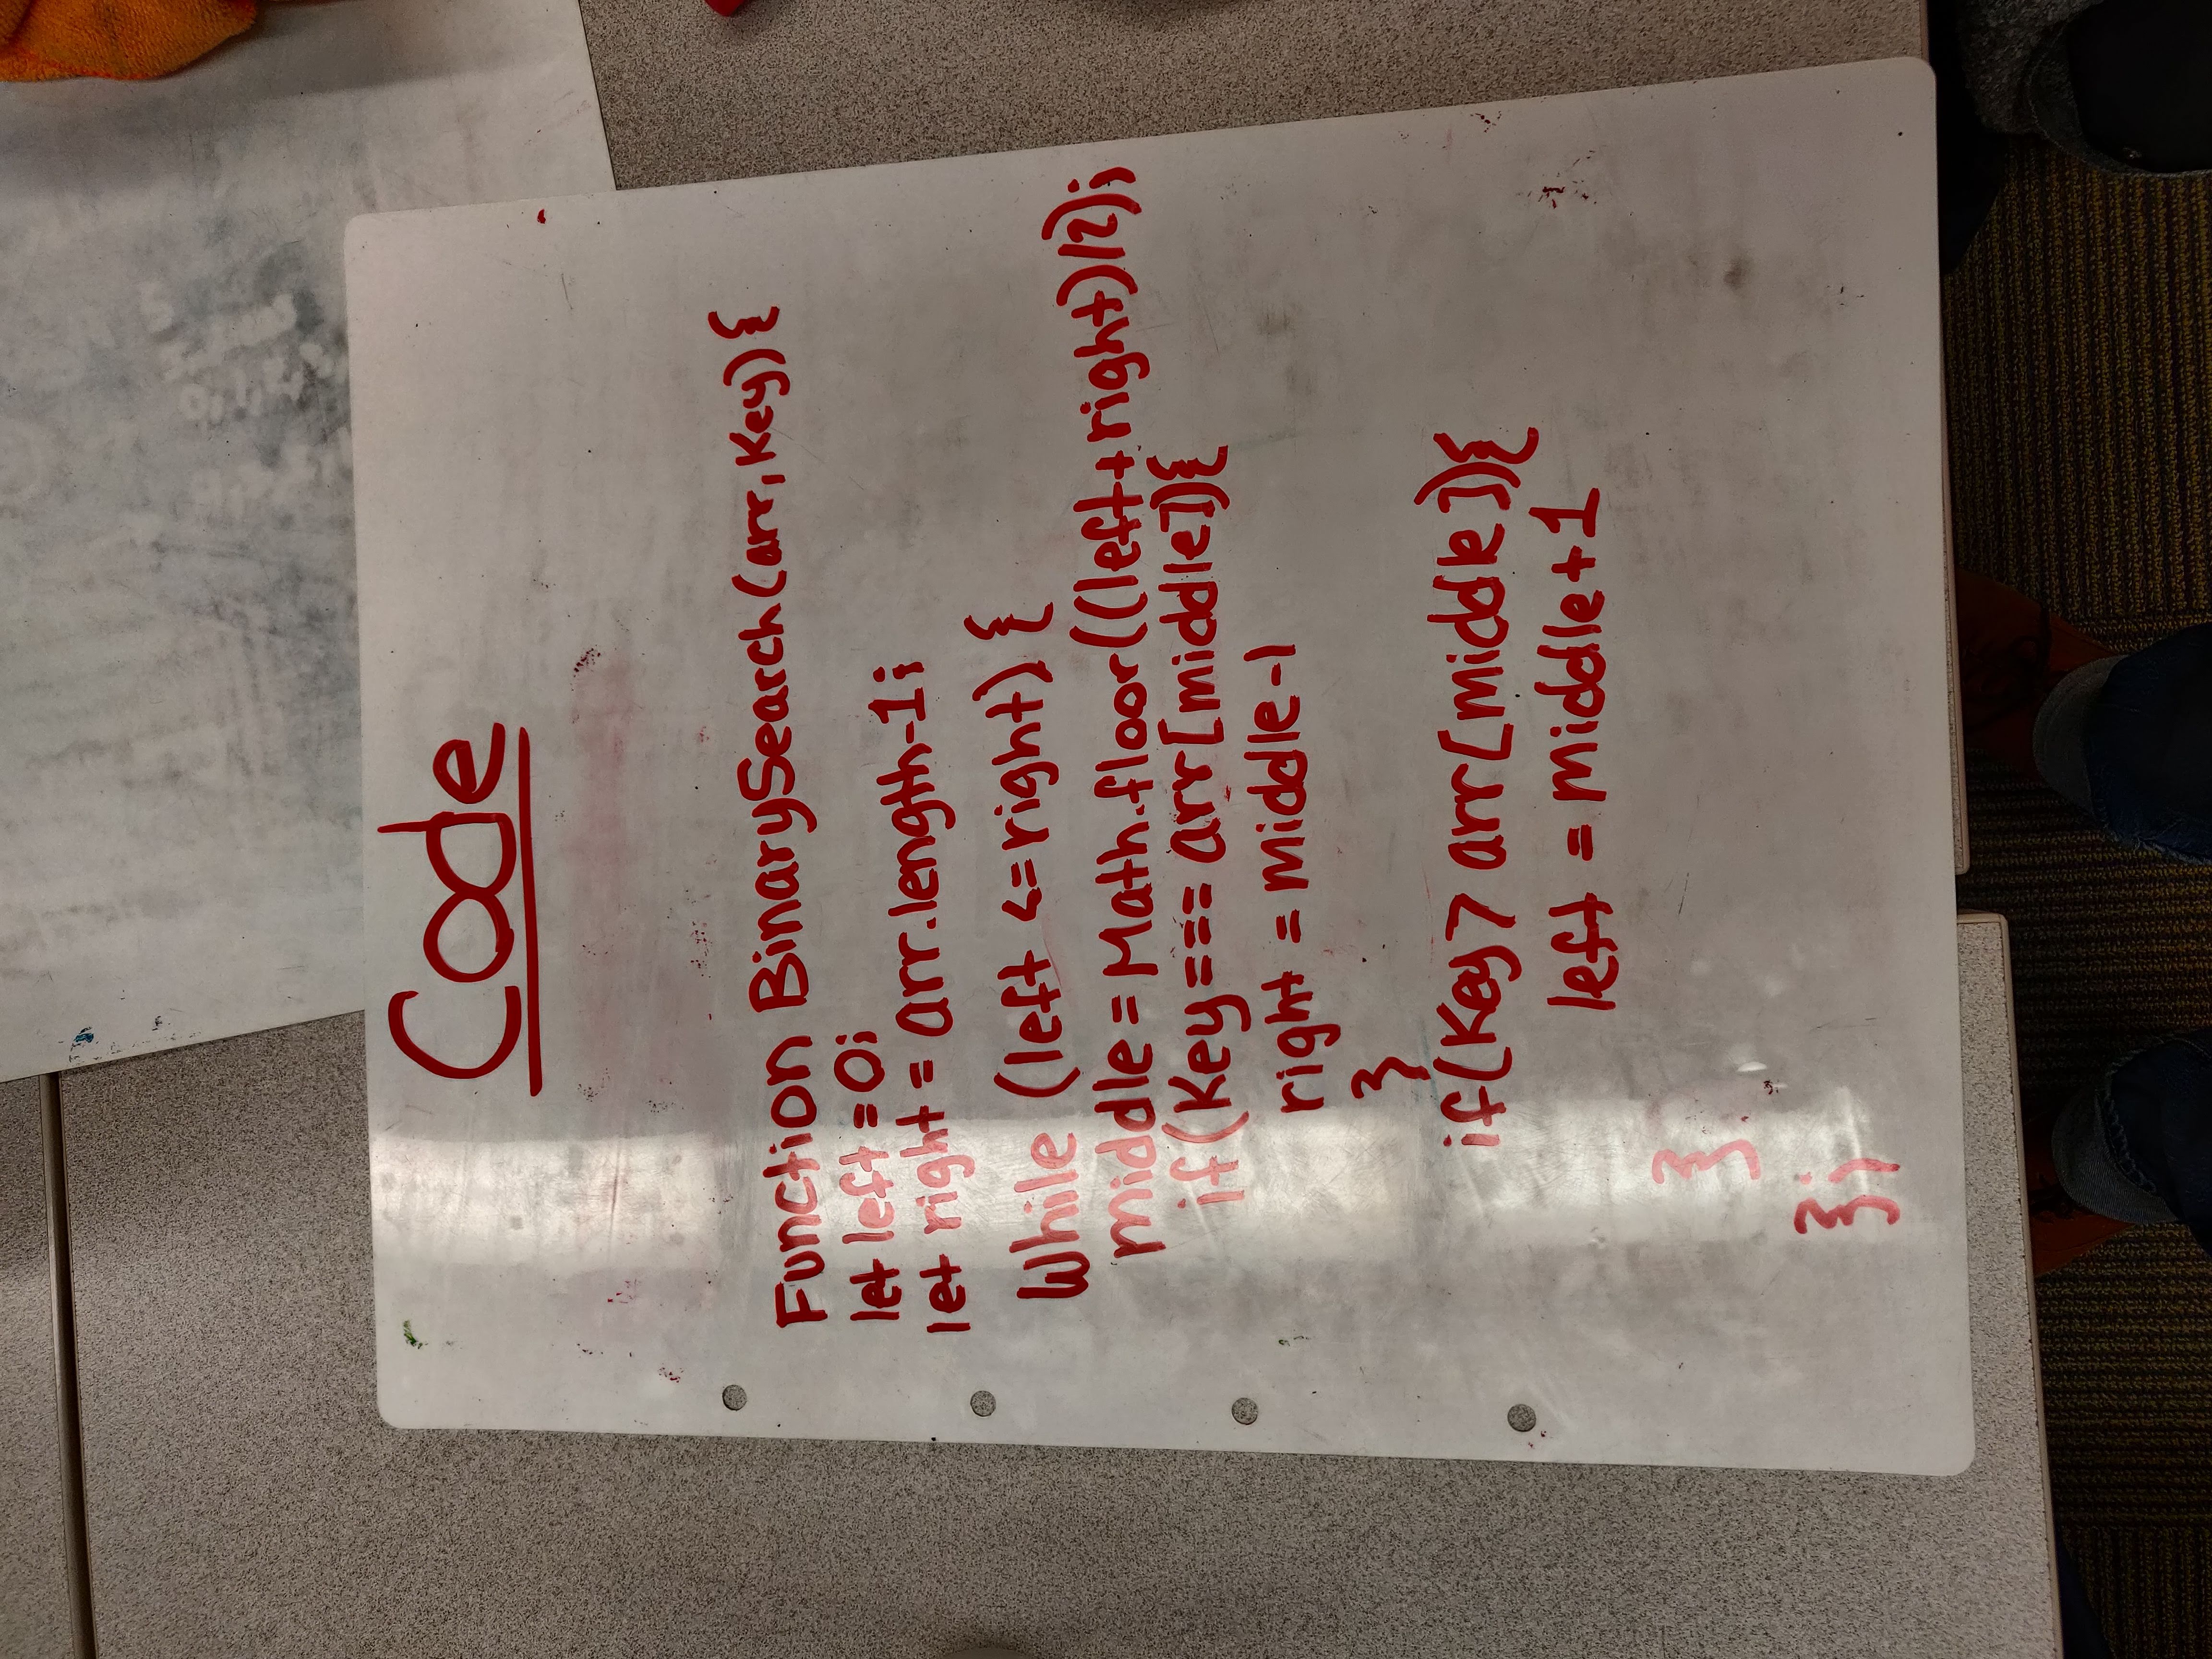 Code
Function BinarySearch(arr, Key){
let left = 0;
let right = arr.length-1;
While (left <=right) {
middle = Math.floor((left+right)/2);
if(Key=== arr[middle]){
right = middle-1
}
if(Key > arr[middle]){
left = middle+1
}
};